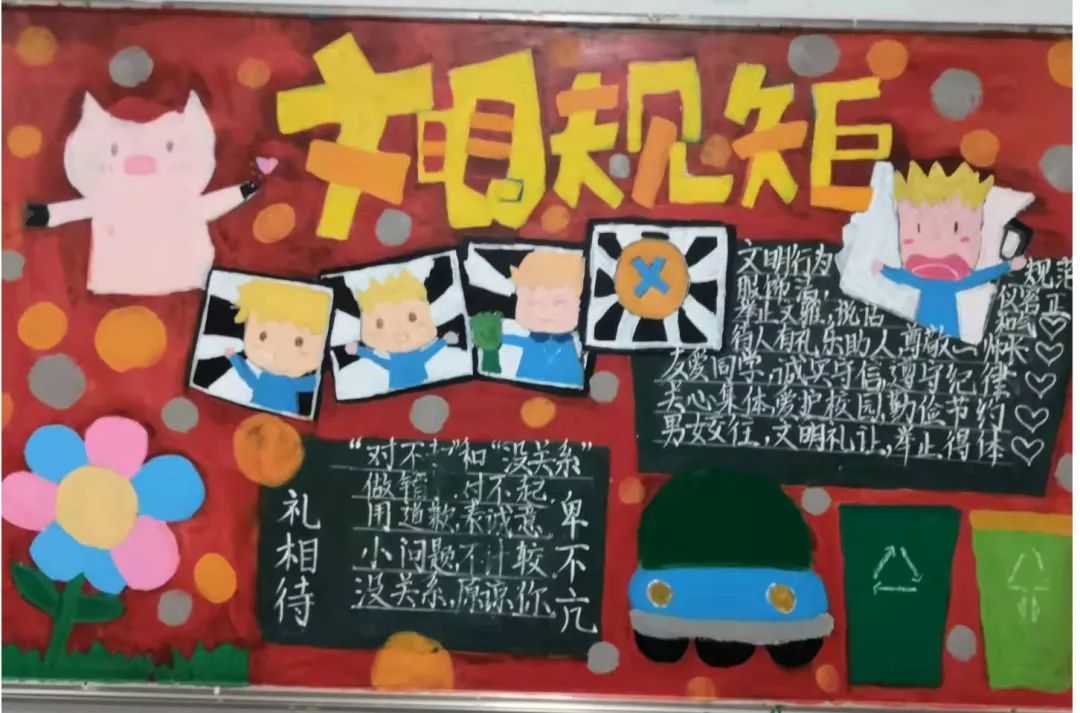 文明规矩
文明行为
规范
服饰洁,
仪容正
举止文雅,说话
和气
待人有礼乐助人尊敬师长
友爱同学,诚实守信,遵守纪律
关心集体爱护校园,勤俭节约
男女交往,文明礼让,举止得体
礼相待
“对不起”和“没关系”
做错 ,对不起,
用道歉,表诚意
小问题,不计较
没关系,原谅你,
卑不亢